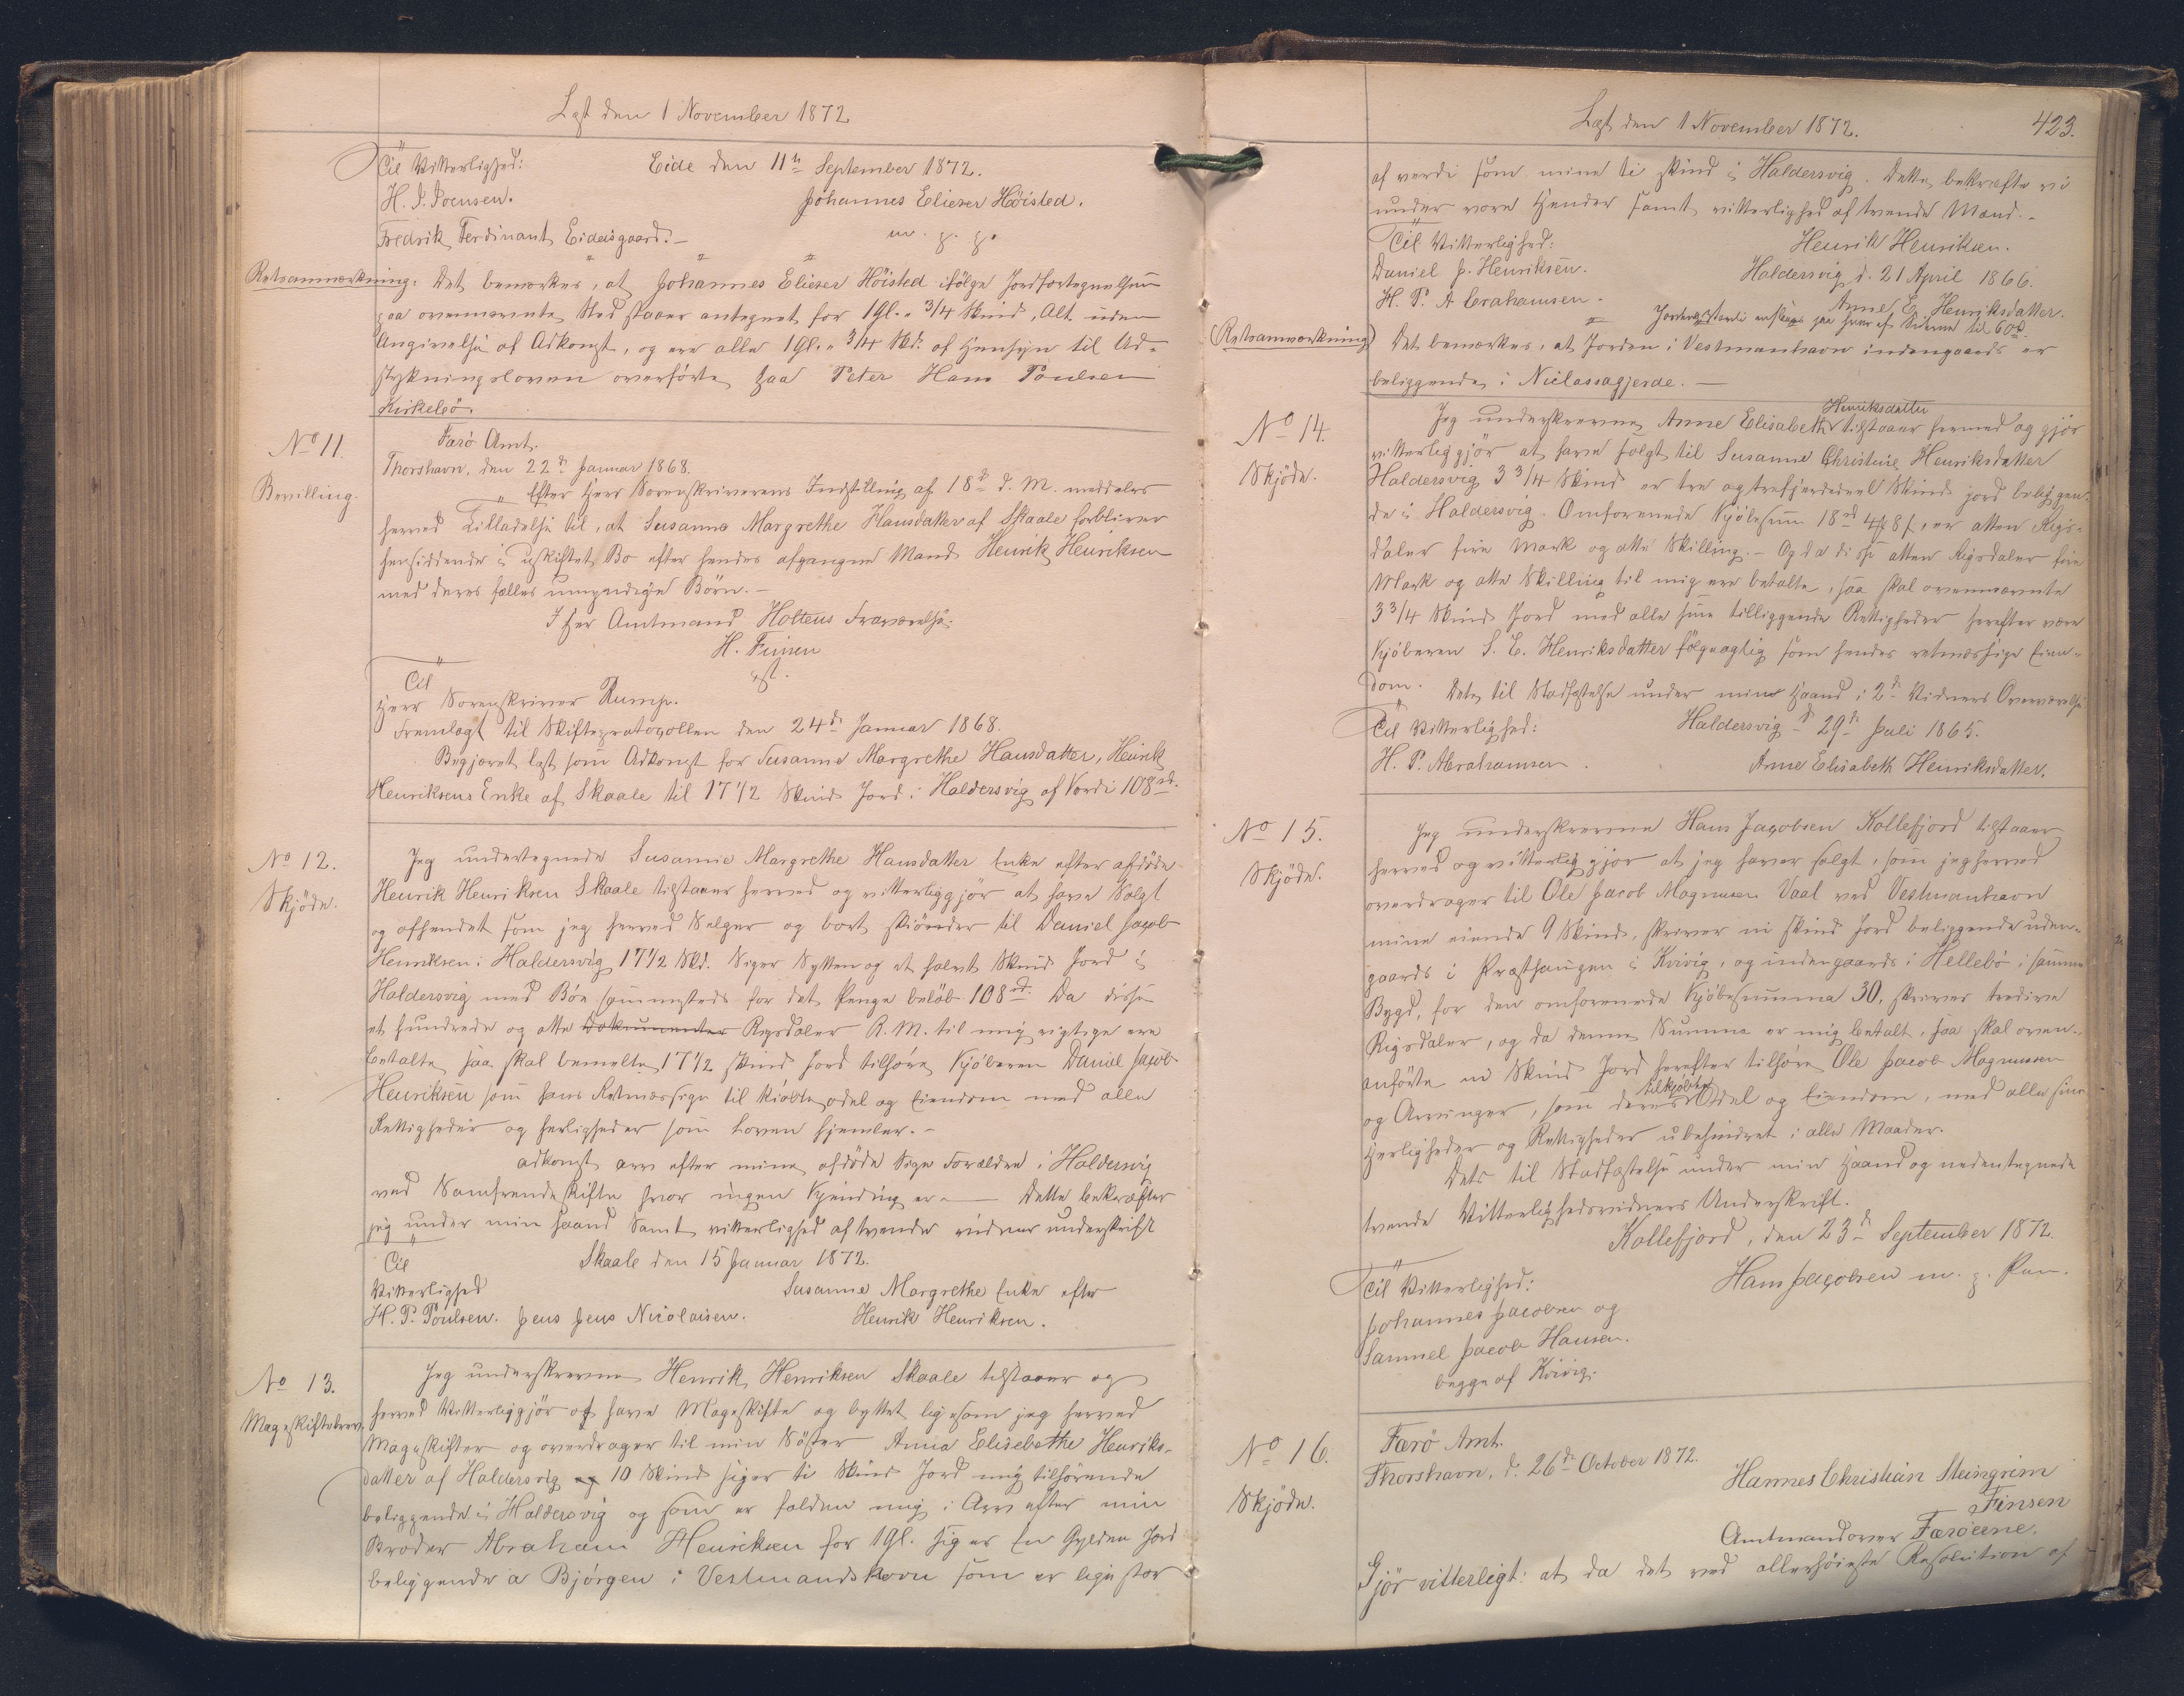 Læst den 1 November 1872
Til Vitterlighed: Eide den 11te September 1872.
H. J. Joensen. Johannes Elieser Höisted.
Fredrik Ferdinant Eidesgaard. m. p. p.
Retsanmærkning: Det bemærkes, at Johannes Elieser Höisted ifölge Jordfortegnelsen
paa ovennævnte Sted staaer antegnet for 1 Gl. 3/4 Skind, Alt uden
Angivelse af Adkomst, og ere alle 1 Gl. 3/4 Skd. af Hensyn til Ud-
stykningsloven overförte paa Peter Hans Poulsen
Kirkebö.
No 11. Færö Amt.
Thorshavn, den 22de Januar 1868.
Bevilling. Efter Herr Sorenskriverens Indstilling af 18de d. M. meddeles
herved Tilladelse til, at Susanne Margrethe Hansdatter af Skaale forbliver
hensiddende i uskiftet Bo efter hendes afgangne Mand Henrik Henriksen
med deres fælles umyndige Börn.
I Her Amtmand Holtens Fraværelse.
H. Finsen
cst.
Til
Herr Sorenskriver Rump.
Fremlagt til Skifteprotocollen den 24de Januar 1868.
Begjæret læst som Adkomst for Susanne Margrethe Hansdatter, Henrik
Henriksens Enke af Skaale til 17 1/2 Skind Jord i Haldersvig af Værdi 108 rd.
No 12. Jeg undertegnede Susanne Margrethe Hansdatter Enke efter afdöde
Skjöde. Henrik Henriksen Skaale tilstaaer herved og vitterliggjör at have Solgt
og afhendet som jeg herved Selger og bort skiöder til Daniel Jacob
Henriksen i Haldersvig 17 1/2 Skd. Siger Sytten og et halvt Skind Jord i
Haldersvig med Böe sammesteds for det Penge belöb 108 rd. Da disse
et hundrede og otte Dokumenter Rigsdaler R. M. til mig rigtige ere
betalte saa skal bemelte 17 1/2 skind Jord tilhöre Kjöberen Daniel Jacob
Henriksen som hans Retmæssige til kiöbte odel og Eiendom med alle
Rettigheder og herligheder som Loven hjemler.
adkomst arv efter mine afdöde Sige Forældre i Haldersvig
ved Samfrendeskifte hvor ingen Kjending er. Dette bekræfter
jeg under min haand Samt vitterlighed af tvende vidner underskrift
Til Skaale den 15 Januar 1872.
Vitterlighed Susanne Margrethe Enke efter
H. P. Poulsen. Jens Jens Nicolaisen. Henrik Henriksen.
No 13. Jeg underskrevne Henrik Henriksen Skaale tilstaaer og
Mageskiftebrev. herved Vitterliggjör at have Mageskifte og byttet ligesom jeg herved
Mageskifter og overdrager til min Söster Anna Elisebethe Henriks-
datter af Haldersvig og 10 Skind siger ti Skind Jord mig tilhörende
beliggende i Haldersvig og som er falden mig i Arv efter min
Broder Abraham Henriksen for 1 Gl. siger En Gylden Jord
beliggende a Bjórgen i Vestmandshavn som er lige stor
Læst den 1 November 1872. 423.
af verdi som mine ti skind i Haldersvig. Dette bekræfte vi
under vore Hender samt vitterlighed af tvende Mænd.
Til Vitterlighed: Henrik Henriksen.
Daniel J. Henriksen. Haldersvig d. 21 April 1866.
H. P. Abrahamsen. Anne E. Henriksdatter.
Jordens Værdi ansees paa hver af Siderne til 60 rd.
(Retsanmærkning) Det bemærkes, at Jorden i Vestmanhavn indengaards er
beliggende i Niclassagjerde.
No 14. Jeg underskrevne Anne Elisabeth Henriksdatter tilstaaer herved og gjör
vitterliggjör at have solgt til Susanne Christine Henriksdatter
Skjöde. Haldersvig 3 3/4 Skind er tre og trefjerdedeel Skind jord beliggen-
de i Haldersvig. Omforenede Kjöbesum 18 rd 4 ℳ 8 ß, er atten Rigs-
daler fire Mark og otte Skilling. Og da disse atten Rigsdaler fire
Mark og otte Skilling til mig ere betalte, saa skal ovennævnte
3 3/4 Skind Jord med alle sine tilliggende Rettigheder herefter være
Kjöberen S. C. Henriksdatter fölgeagtig som hendes retmæssige Eien-
dom. Dets til Stadfæstelse under min Haand i 2de Vidners Overværelse
Til Vitterlighed: Haldersvig d. 29de Juli 1865.
H. P. Abrahamsen. Anne Elisabeth Henriksdatter.
No 15. Jeg underskrevne Hans Jacobsen Kollefjord tilstaaer
Skjöde. herved og vitterliggjör at jeg haver solgt, som jeg herved
overdrager til Ole Jacob Magnussen Vaal ved Vestmanhavn
mine eiende 9 Skind, skriver ni skind Jord beliggende uden-
gaards i Præsthaugen i Kvivig, og indengaards i Hellebö i samme
Bygd, for den omforenede Kjöbesumma 30, skriver tredive
Rigsdaler, og da denne Summa er mig betalt, saa skal oven-
anförte ni Skind Jord herefter tilhöre Ole Jacob Magnussen
og Arvinger, som deres tilkjöbte Odel og Eiendom, med alle sine
Herligheder og Rettigheder ubehindret i alle Maader.
Dets til Stadfæstelse under min Haand og nedentegnede
tvende Vitterlighedsvidners Underskrift.
Kollefjord, den 23de September 1872.
Til Vitterlighed: Hans Jacobsen m. p. Pen.
Johannes Jacobsen og
Samuel Jacob Hansen.
begge af Kvivig.
No 16. Færö Amt.
Thorshavn, d. 26de October 1872.
Skjöde. Hannes Christian Steingrim
Finsen
Amtmand over Færöerne.
Gjör vitterligt: at da det ved allerhöieste Resolution af